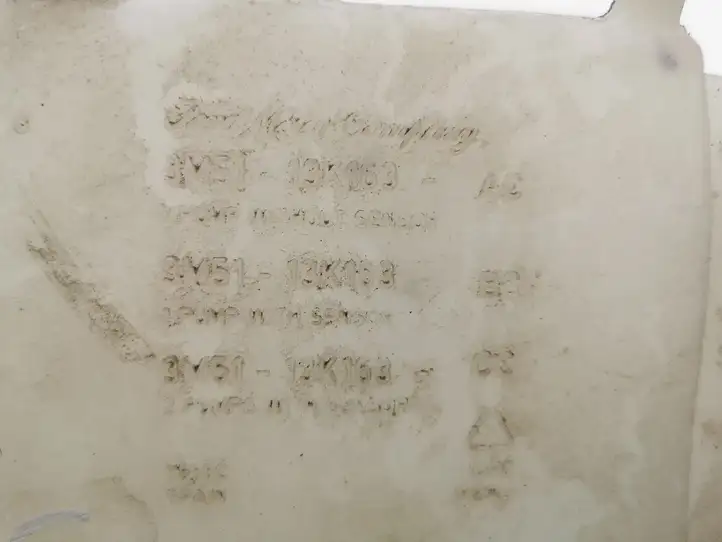 Ford Motor Company
3M51 - 13K163 - AC
1 PUMP WITHOUT SENSOR
3M51 - 13K163 - BC
1 PUMP WITH SENSOR
3M51 - 13K163 - CC
2 PUMPS WITH SENSOR
MADE
SPAIN